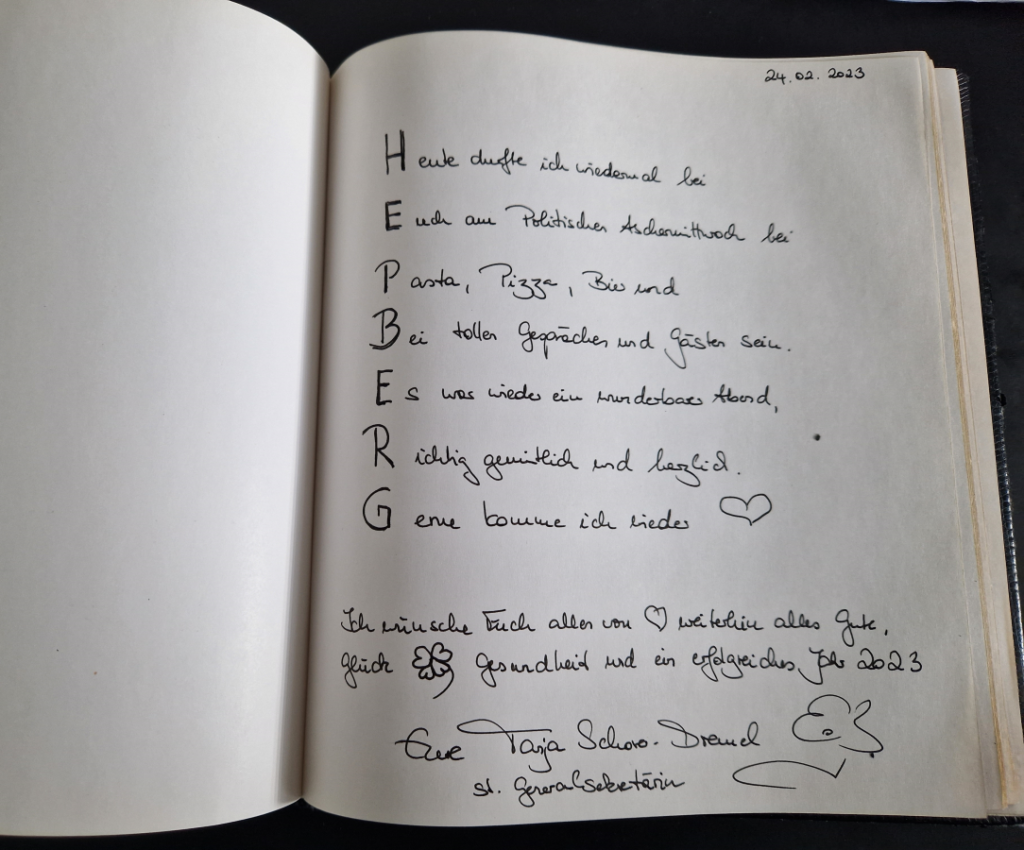 24.02.2023
Heute durfte ich wiedermal bei
Euch am Politischen Aschermittwoch bei
Pasta, Pizza, Bier und
Bei tollen Gesprächen und Gästen sein.
Es war wieder ein wunderbarer Abend,
Richtig gemütlich und herzlich.
Gerne komme ich wieder
Ich wünsche Euch allen von weiterhin alles Gute,
Glück Gesundheit und ein erfolgreiches Jahr 2023
Eure Tanja Schorer-Dremel
st. Generalsekretärin